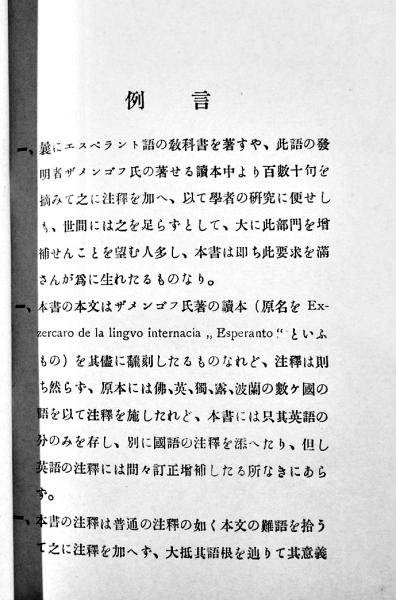 例言
一、曩にエスペラント語の敎科書を著すや、此語の發
明者ザメンゴフ氏の著せる讀本中より百數十句を
摘みて之に注釋を加へ、以て學者の硏究に便せし
も、世間には之を足らずとして、大に此部門を增
補せんことを望む人多し、本書は卽ち此要求を滿
さんが爲に生れたるものなり。
一、本書の本文はザメンゴフ氏著の讀本（原名を Ex-
zercaro de la lingvo internacia „ Esperanto “ といふ
もの）を其儘に飜刻したるものなれど、注釋は則
ち然らず、原本には佛、英、獨、露、波蘭の數ケ國の
語を以て注釋を施したれど、本書には只其英語の
分のみを存し、別に國語の注釋を添へたり、但し
英語の注釋には間々訂正增補したる所なきにあら
ず。
一、本書の注釋は普通の注釋の如く本文の難語を拾う
て之に注釋を加へず、大抵其語根を辿りて其意義